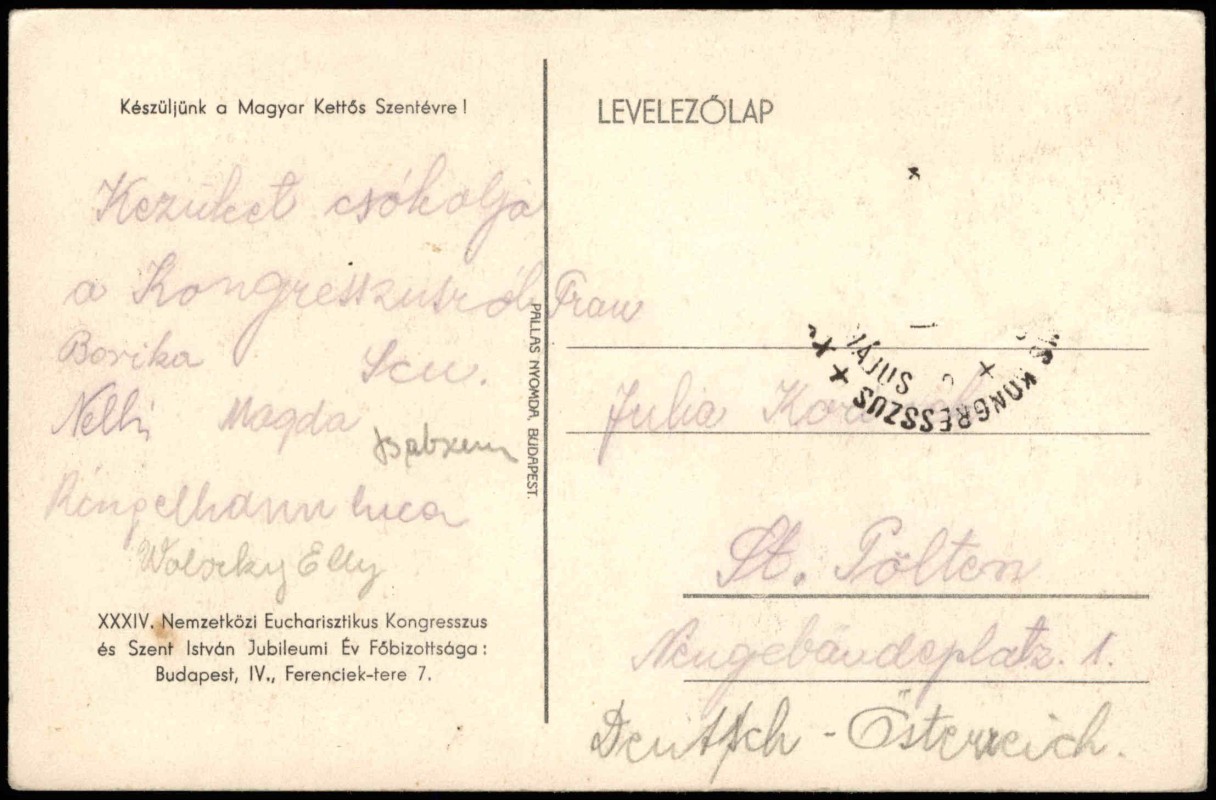 Készüljünk a Magyar Kettős Szentévre!
Kezüket csókolja
a Kongresszusról
Borika
Nelli Magda
Ringelhann Luca
Wolszky Elly
XXXIV. Nemzetközi Eucharisztikus Kongresszus
és Szent István Jubileumi Év Főbizottsága:
Budapest, IV., Ferenciek-tere 7.
PALLAS NYOMDA BUDAPEST.
LEVELEZŐLAP
KONGRESSZUS
MÁJUS
Frau
Julia
St. Pölten
Neugebäudeplatz. 1.
Deutsch-Österreich.